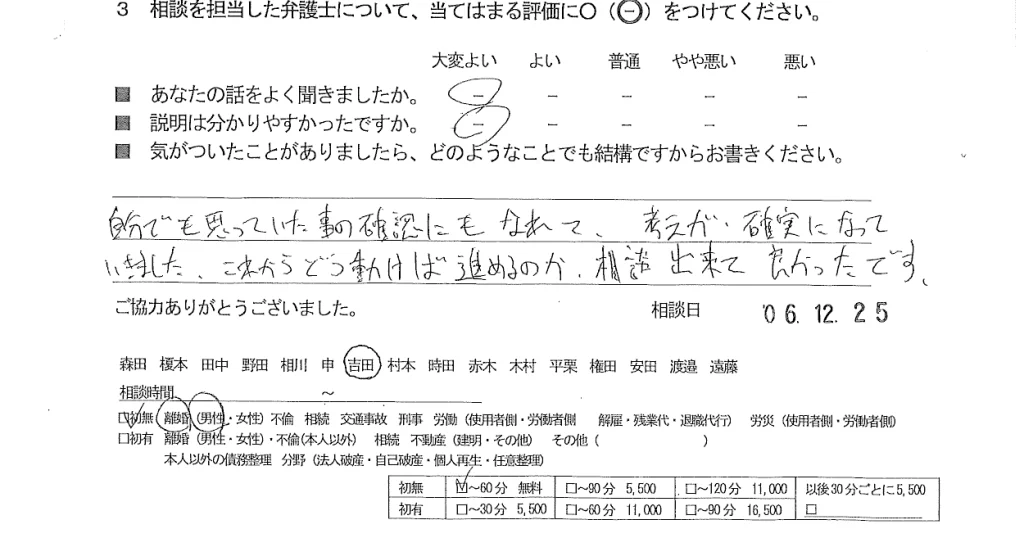 3 相談を担当した弁護士について、当てはまる評価に○（㊀）をつけてください。
大変よい よい 普通 やや悪い 悪い
■ あなたの話をよく聞きましたか。 − − − − −
■ 説明は分かりやすかったですか。 − − − − −
■ 気がついたことがありましたら、どのようなことでも結構ですからお書きください。
自分でも思っていた事の確認にもなれて、考えが・確実になって
いきました、これからどう動けば進めるのか、相談出来て良かったです。
ご協力ありがとうございました。 相談日 '06.12.25
森田 榎本 田中 野田 相川 申 吉田 村本 時田 赤木 木村 平栗 権田 安田 渡邉 遠藤
相談時間 ～
☑初無 離婚（男性・女性）不倫 相続 交通事故 刑事 労働（使用者側・労働者側 解雇・残業代・退職代行） 労災（使用者側・労働者側）
□初有 離婚（男性・女性）・不倫(本人以外) 相続 不動産（建明・その他） その他（ ）
本人以外の債務整理 分野（法人破産・自己破産・個人再生・任意整理）
初無 ☑～60分 無料 □～90分 5,500 □～120分 11,000 以後30分ごとに5,500
初有 □～30分 5,500 □～60分 11,000 □～90分 16,500 □